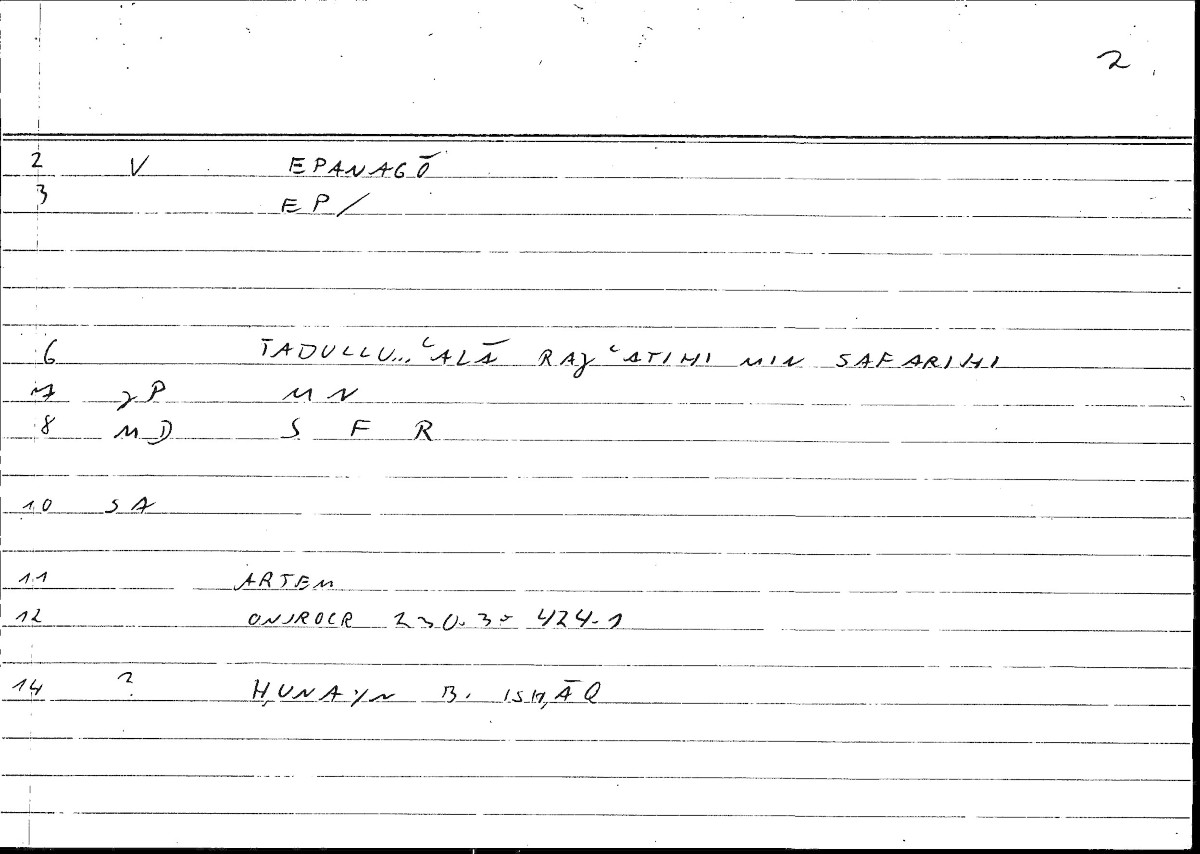 2
2 V EPANAGŌ
3 EP/
6 TADULLU... ʿALĀ RAJʿATIHI MIN SAFARIHI
7 JP MN
8 MD S F R
10 SA
11 ARTEM
12 ONIROCR 230.3 424.1
14 ? ḤUNAYN B. ISḤĀQ